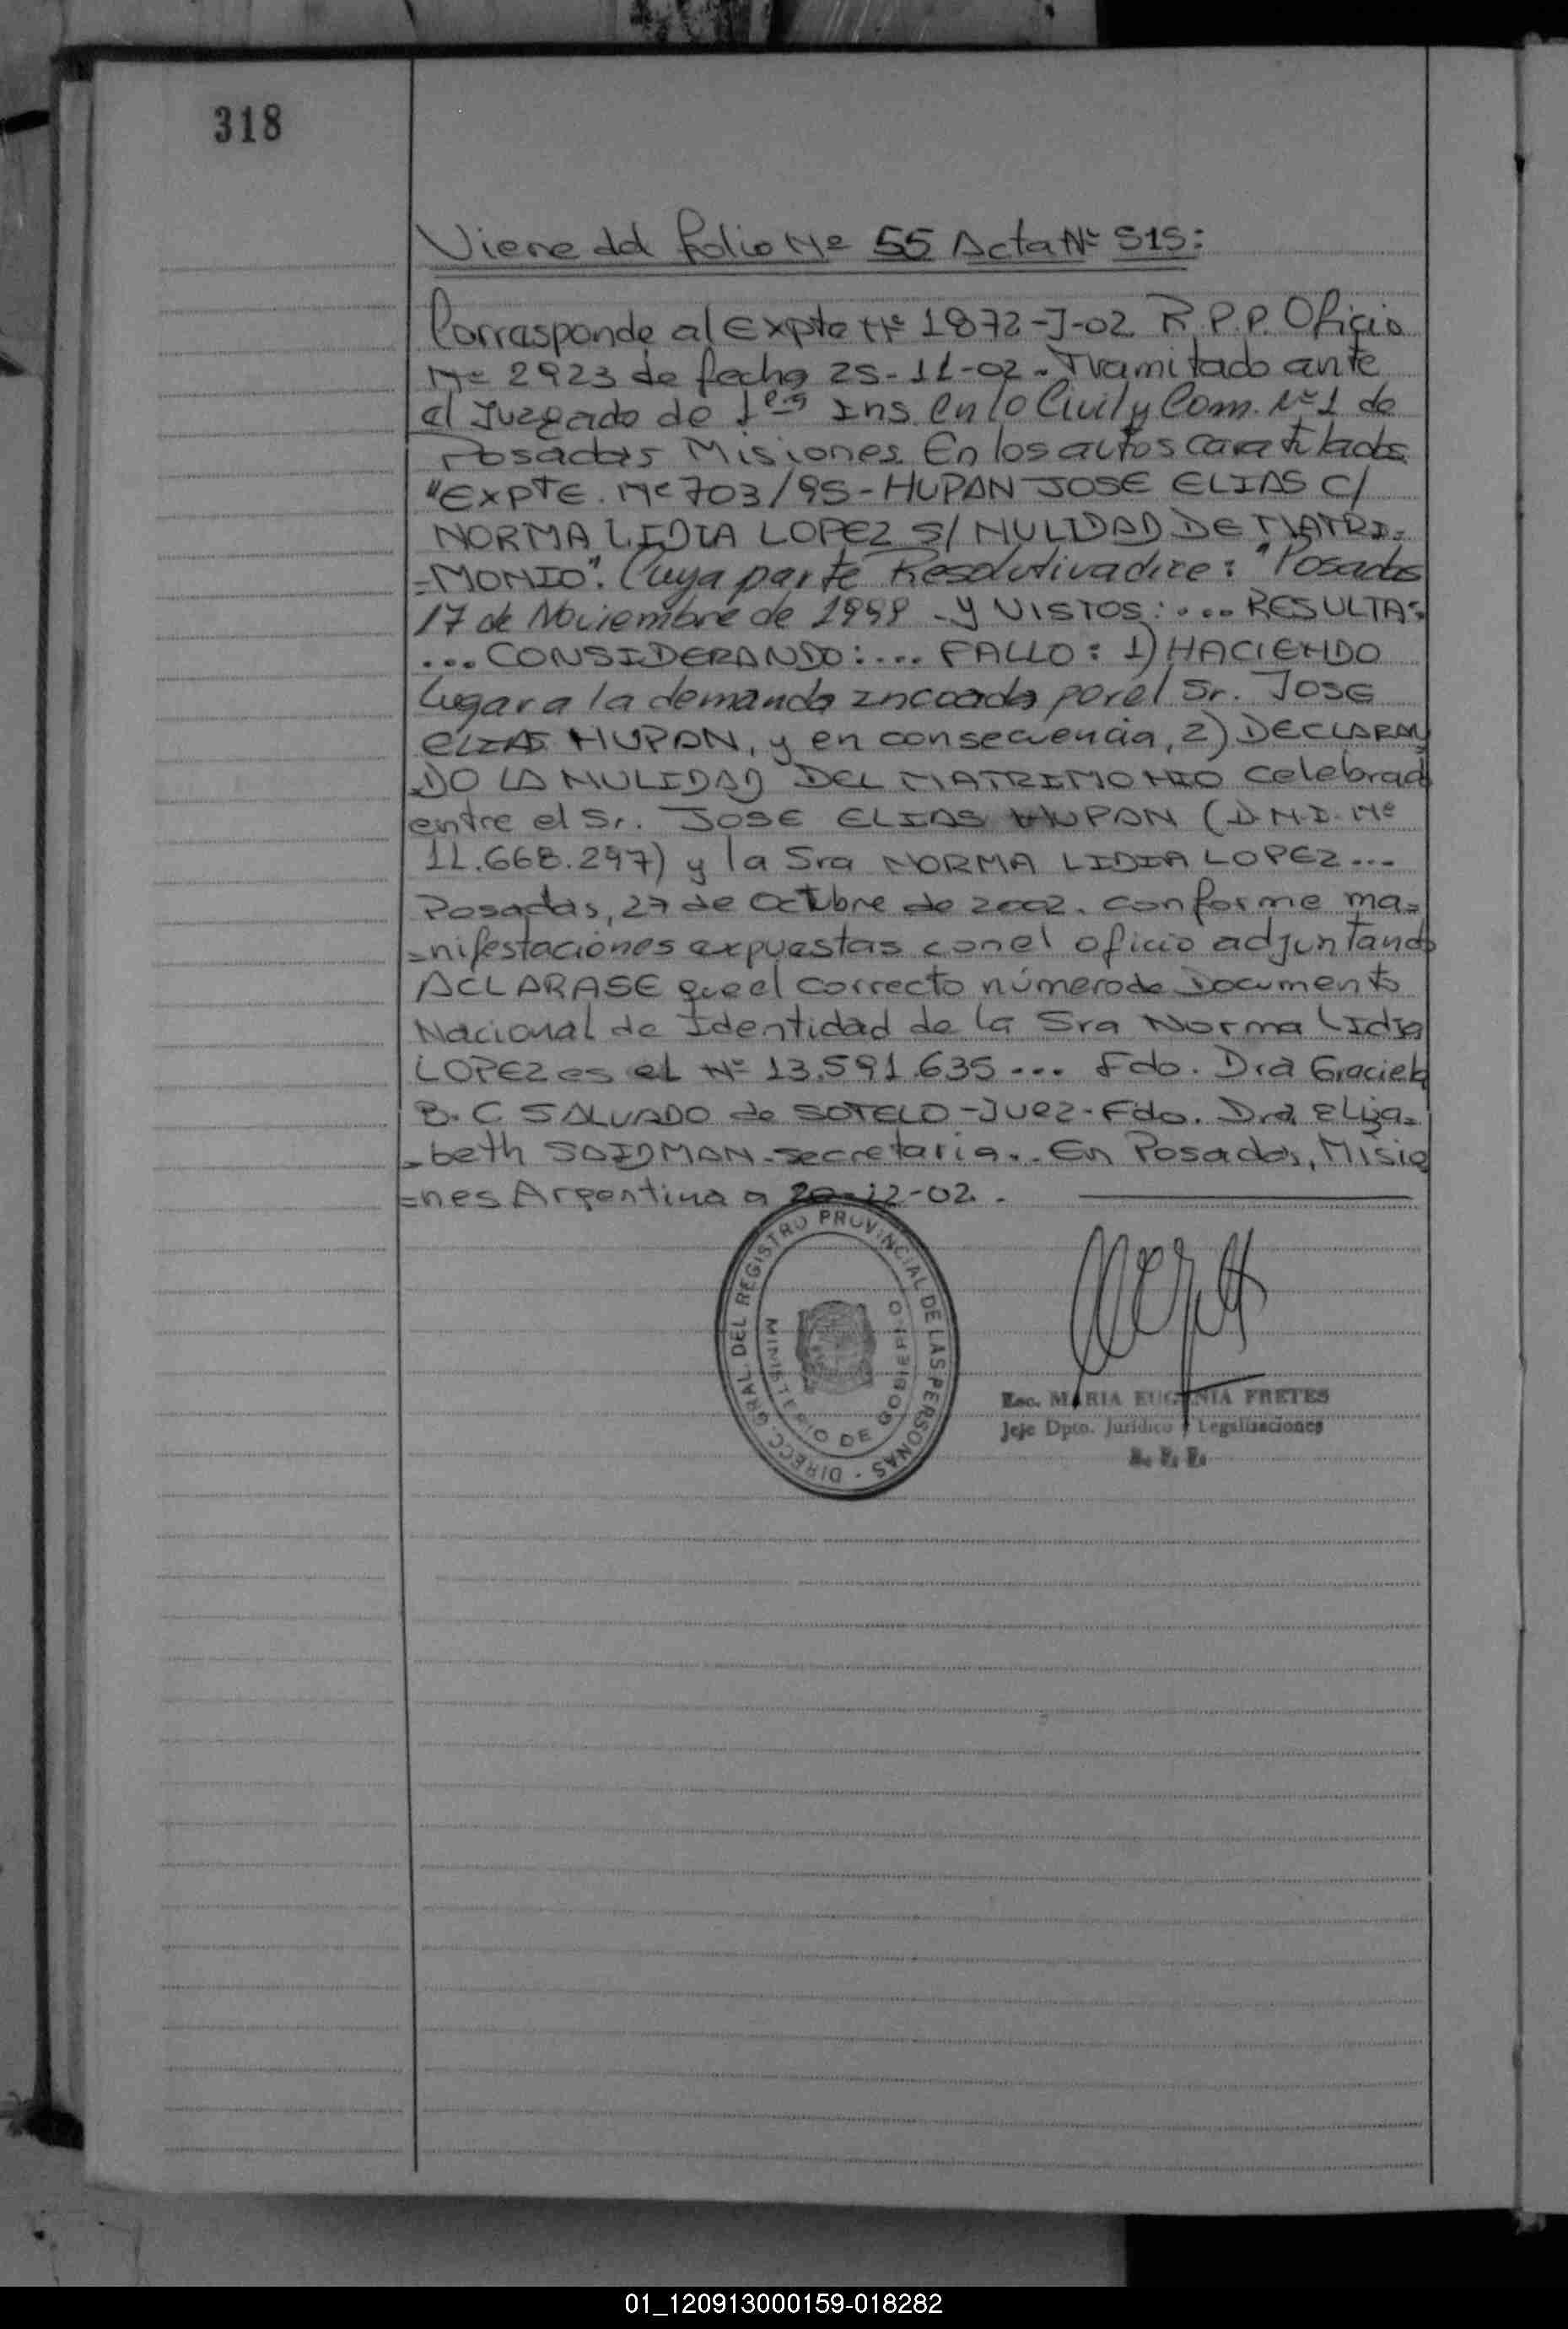 318
Viene del folio Nº 55 Acta Nº 515:
Corresponde al Expte Nº 1872-J-02 R.P.P. Oficio
Nº 2923 de fecha 25-11-02. Tramitado ante
el Juzgado de 1era Ins. En lo Civil y Com. Nº 1 de
Posadas Misiones. En los autos caratulados
"EXPTE. Nº 703/95 - HUPAN JOSE ELIAS C/
NORMA LIDIA LOPEZ S/ NULIDAD DE MATRI=
=MONIO". Cuya parte Resolutiva dice: "Posadas
17 de Noviembre de 1999 - Y VISTOS: .... RESULTA:
... CONSIDERANDO: .... FALLO: 1) HACIENDO
Lugar a la demanda incoada por el Sr. JOSE
ELIAS HUPAN, y en consecuencia, 2) DECLARAN
DO LA NULIDAD DEL MATRIMONIO celebrado
entre el Sr. JOSE ELIAS HUPAN (D.N.I. Nº
11.668.297) y la Sra NORMA LIDIA LOPEZ ...
Posadas, 27 de Octubre de 2002. conforme ma=
=nifestaciones expuestas con el oficio adjuntando
ACLARASE que el correcto número de Documento
Nacional de Identidad de la Sra Norma Lidia
LOPEZ es el Nº 13.591.635 ... Fdo. Dra Graciela
B. C SALVADO de SOTELO - Juez - Fdo. Dra, Eliza=
=beth SAIDMAN - secretaria. . En Posadas, Misio
=nes Argentina a 20-12-02.
DIRECC. GRAL. DEL REGISTRO PROVINCIAL DE LAS PERSONAS -
MINISTERIO DE GOBIERNO
Esc. MARIA EUGENIA FRETES
Jefe Dpto. Jurídico y Legalizaciones
R. P. P.
01_120913000159-018282